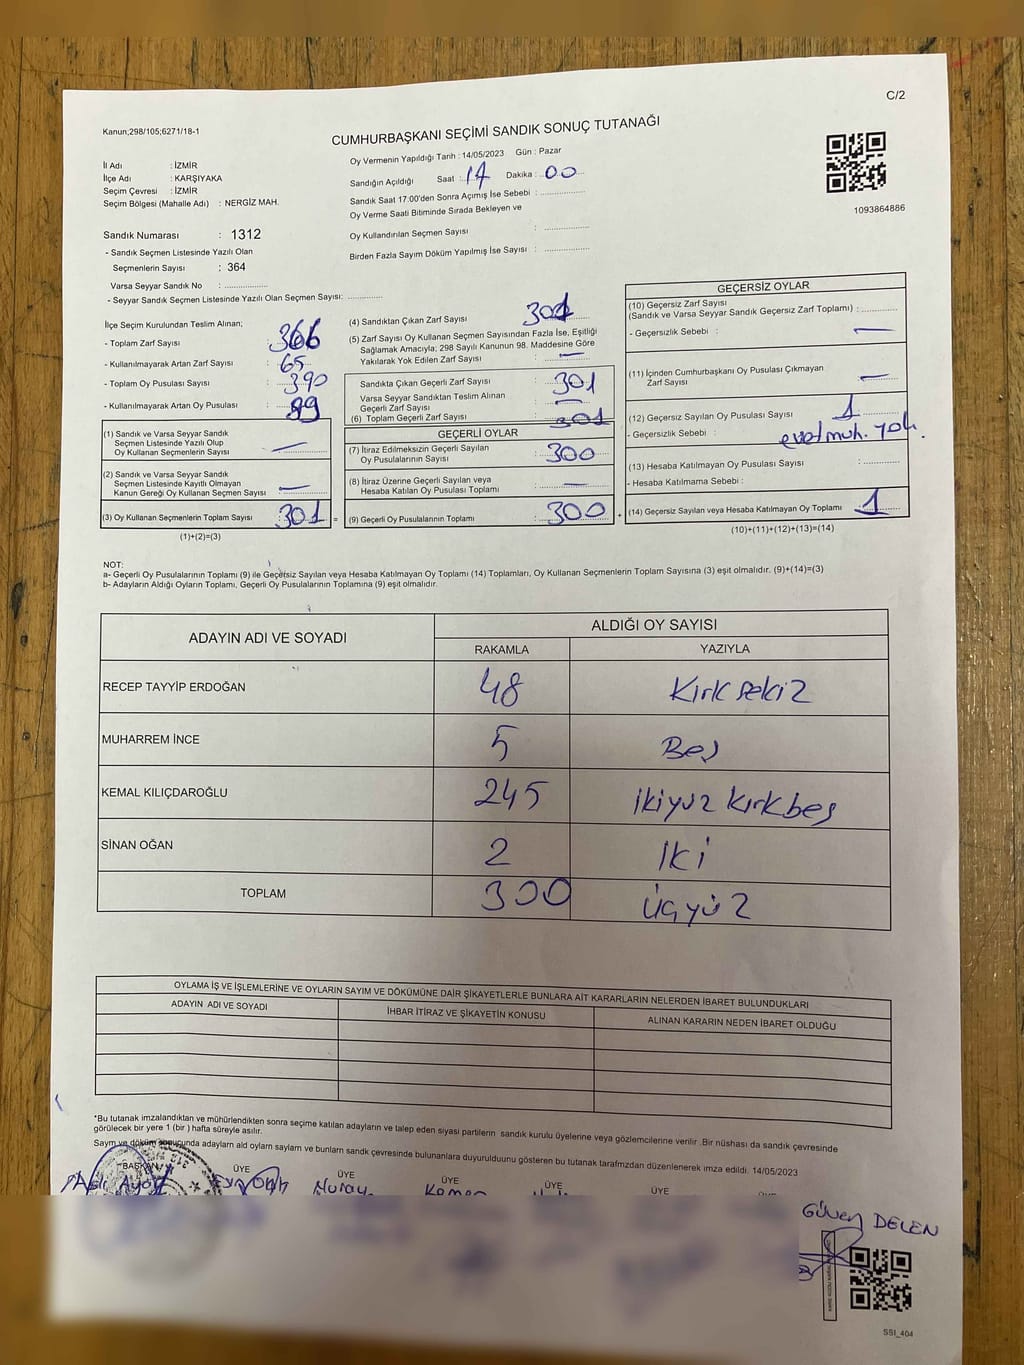 C/2
Kanun;298/105;6271/18-1
CUMHURBAŞKANI SEÇİMİ SANDIK SONUÇ TUTANAĞI
İl Adı : İZMİR
İlçe Adı : KARŞIYAKA
Seçim Çevresi : İZMİR
Seçim Bölgesi (Mahalle Adı) : NERGİZ MAH.
Oy Vermenin Yapıldığı Tarih : 14/05/2023 Gün : Pazar
Sandığın Açıldığı Saat : 17 Dakika : 00
Sandık Saat 17:00'den Sonra Açımış İse Sebebi :
Oy Verme Saati Bitiminde Sırada Bekleyen ve
Oy Kullandırılan Seçmen Sayısı :
Birden Fazla Sayım Döküm Yapılmış İse Sayısı :
1093864886
Sandık Numarası : 1312
- Sandık Seçmen Listesinde Yazılı Olan
Seçmenlerin Sayısı : 364
Varsa Seyyar Sandık No :
- Seyyar Sandık Seçmen Listesinde Yazılı Olan Seçmen Sayısı:
İlçe Seçim Kurulundan Teslim Alınan;
- Toplam Zarf Sayısı : 366
- Kullanılmayarak Artan Zarf Sayısı : 65
- Toplam Oy Pusulası Sayısı : 390
- Kullanılmayarak Artan Oy Pusulası : 89
(1) Sandık ve Varsa Seyyar Sandık
Seçmen Listesinde Yazılı Olup
Oy Kullanan Seçmenlerin Sayısı : —
(2) Sandık ve Varsa Seyyar Sandık
Seçmen Listesinde Kayıtlı Olmayan
Kanun Gereği Oy Kullanan Seçmen Sayısı : —
(3) Oy Kullanan Seçmenlerin Toplam Sayısı : 301 =
(1)+(2)=(3)
(4) Sandıktan Çıkan Zarf Sayısı : 301
(5) Zarf Sayısı Oy Kullanan Seçmen Sayısından Fazla İse, Eşitliği
Sağlamak Amacıyla, 298 Sayılı Kanunun 98. Maddesine Göre
Yakılarak Yok Edilen Zarf Sayısı : —
Sandıkta Çıkan Geçerli Zarf Sayısı : 301
Varsa Seyyar Sandıktan Teslim Alınan
Geçerli Zarf Sayısı : —
(6) Toplam Geçerli Zarf Sayısı : 301
GEÇERLİ OYLAR
(7) İtiraz Edilmeksizin Geçerli Sayılan
Oy Pusulalarının Sayısı : 300
(8) İtiraz Üzerine Geçerli Sayılan veya
Hesaba Katılan Oy Pusulası Toplamı : —
(9) Geçerli Oy Pusulalarının Toplamı : 300 +
GEÇERSİZ OYLAR
(10) Geçersiz Zarf Sayısı
(Sandık ve Varsa Seyyar Sandık Geçersiz Zarf Toplamı) :
- Geçersizlik Sebebi : —
(11) İçinden Cumhurbaşkanı Oy Pusulası Çıkmayan
Zarf Sayısı : —
(12) Geçersiz Sayılan Oy Pusulası Sayısı : 1
- Geçersizlik Sebebi : evet muh. yok.
(13) Hesaba Katılmayan Oy Pusulası Sayısı :
- Hesaba Katılmama Sebebi :
(14) Geçersiz Sayılan veya Hesaba Katılmayan Oy Toplamı : 1
(10)+(11)+(12)+(13)=(14)
NOT:
a- Geçerli Oy Pusulalarının Toplamı (9) ile Geçersiz Sayılan veya Hesaba Katılmayan Oy Toplamı (14) Toplamları, Oy Kullanan Seçmenlerin Toplam Sayısına (3) eşit olmalıdır. (9)+(14)=(3)
b- Adayların Aldığı Oyların Toplamı, Geçerli Oy Pusulalarının Toplamına (9) eşit olmalıdır.
ADAYIN ADI VE SOYADI ALDIĞI OY SAYISI
RAKAMLA YAZIYLA
RECEP TAYYİP ERDOĞAN 48 Kırk sekiz
MUHARREM İNCE 5 Beş
KEMAL KILIÇDAROĞLU 245 İkiyüz kırkbeş
SİNAN OĞAN 2 İki
TOPLAM 300 Üçyüz
OYLAMA İŞ VE İŞLEMLERİNE VE OYLARIN SAYIM VE DÖKÜMÜNE DAİR ŞİKAYETLERLE BUNLARA AİT KARARLARIN NELERDEN İBARET BULUNDUKLARI
ADAYIN ADI VE SOYADI İHBAR İTİRAZ VE ŞİKAYETİN KONUSU ALINAN KARARIN NEDEN İBARET OLDUĞU
*Bu tutanak imzalandıktan ve mühürlendikten sonra seçime katılan adayların ve talep eden siyasi partilerin sandık kurulu üyelerine veya gözlemcilerine verilir .Bir nüshası da sandık çevresinde
görülecek bir yere 1 (bir ) hafta süreyle asılır.
Sayım ve döküm sonucunda adayların ald oyların sayılarn ve bunların sandk çevresinde bulunanlara duyurulduunu gösteren bu tutanak tarafımzdan düzenlenerek imza edildi. 14/05/2023
BAŞKAN ÜYE ÜYE ÜYE ÜYE ÜYE
Nuray
Güven DELEN
SSI_404